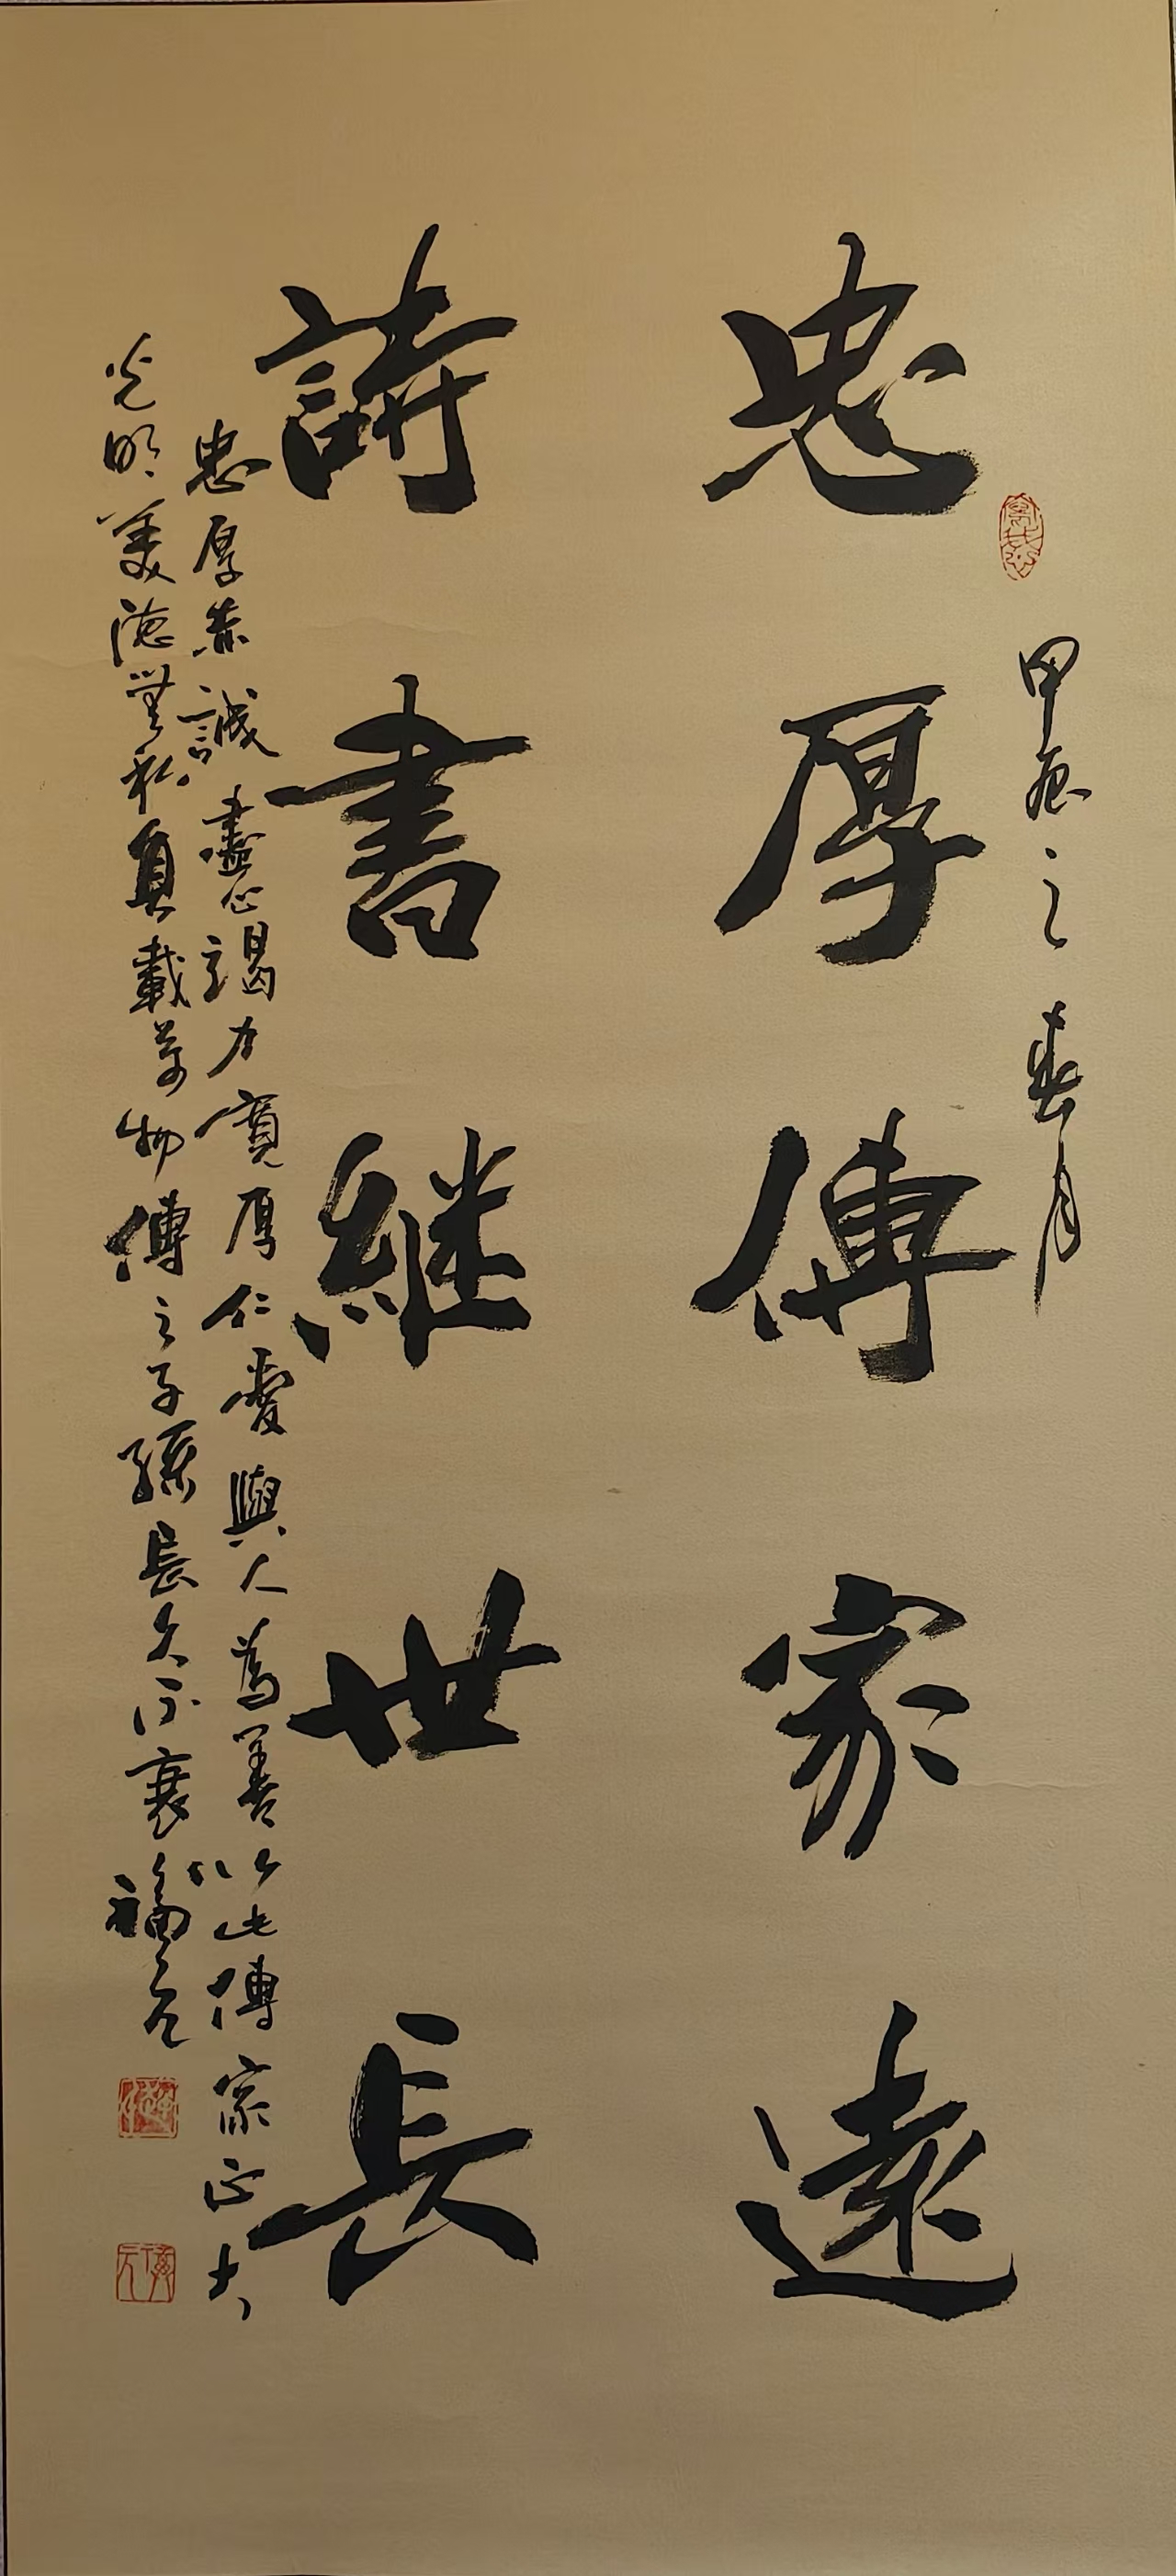 甲辰之春月
忠厚傳家遠
詩書継世長
忠厚赤誠盡心竭力寬厚仁愛與人為善以此傳家正大
光明美德無私負載萬物傳之子孫長久不衰福元